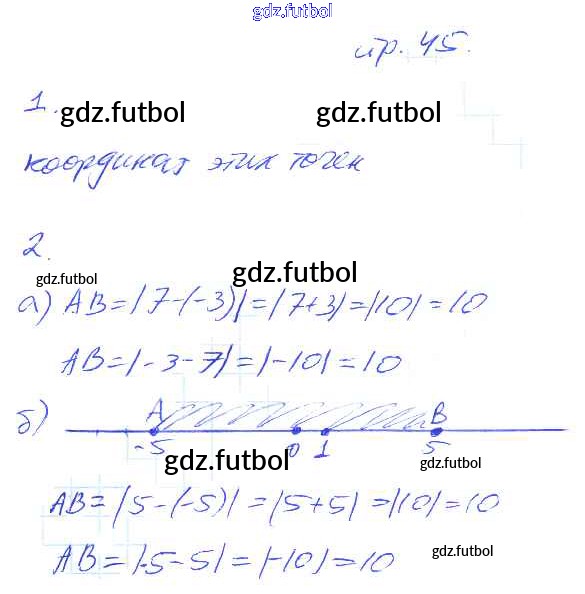 gdz.futbol
пр. 45.
1.
gdz.futbol gdz.futbol
координат этих точек
2.
gdz.futbol gdz.futbol
а) AB=|7-(-3)|=|7+3|=|10|=10
AB=|-3-7|=|-10|=10
б) A B
-5 0 1 5
gdz.futbol gdz.futbol
AB=|5-(-5)|=|5+5|=|10|=10
AB=|-5-5|=|-10|=10
gdz.futbol